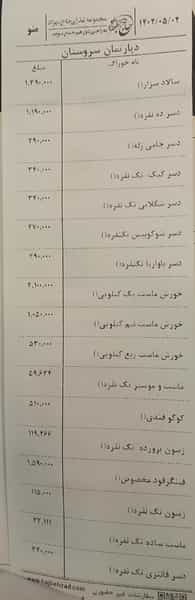 منو
۱۴۰۲/۰۵/۰۴
دپارتمان سروستان
نام خوراک
مبلغ
سالاد سزار()
۱,۲۹۰,۰۰۰
دسر ده نفره()
۱,۱۹۰,۰۰۰
دسر جامی ژله()
۲۹۰,۰۰۰
دسر کیک تک نفره()
۳۴۰,۰۰۰
دسر سکلاتی تک نفره()
۳۴۰,۰۰۰
دسر تک‌نفره()
۲۷۰,۰۰۰
دسر باواریا تکنفره()
۲۹۰,۰۰۰
خورش ماست یک کیلویی()
۲,۱۰۰,۰۰۰
خورش ماست نیم کیلویی()
۱,۰۵۰,۰۰۰
خورش ماست ربع کیلویی()
۵۳۰,۰۰۰
ماست و موسیر تک نفره()
۵۹,۶۳۴
کوکو قندی()
۵۱۰,۰۰۰
زیتون پرورده تک نفره()
۱۱۹,۲۶۶
فینگرفود مخصوص()
۱,۵۹۰,۰۰۰
زیتون تک نفره()
۱۱۵,۰۰۰
ماست ساده تک نفره()
۳۲,۱۱۱
دسر فانتزی تک نفره()
۳۴۰,۰۰۰
سفارشات غیر حضوری